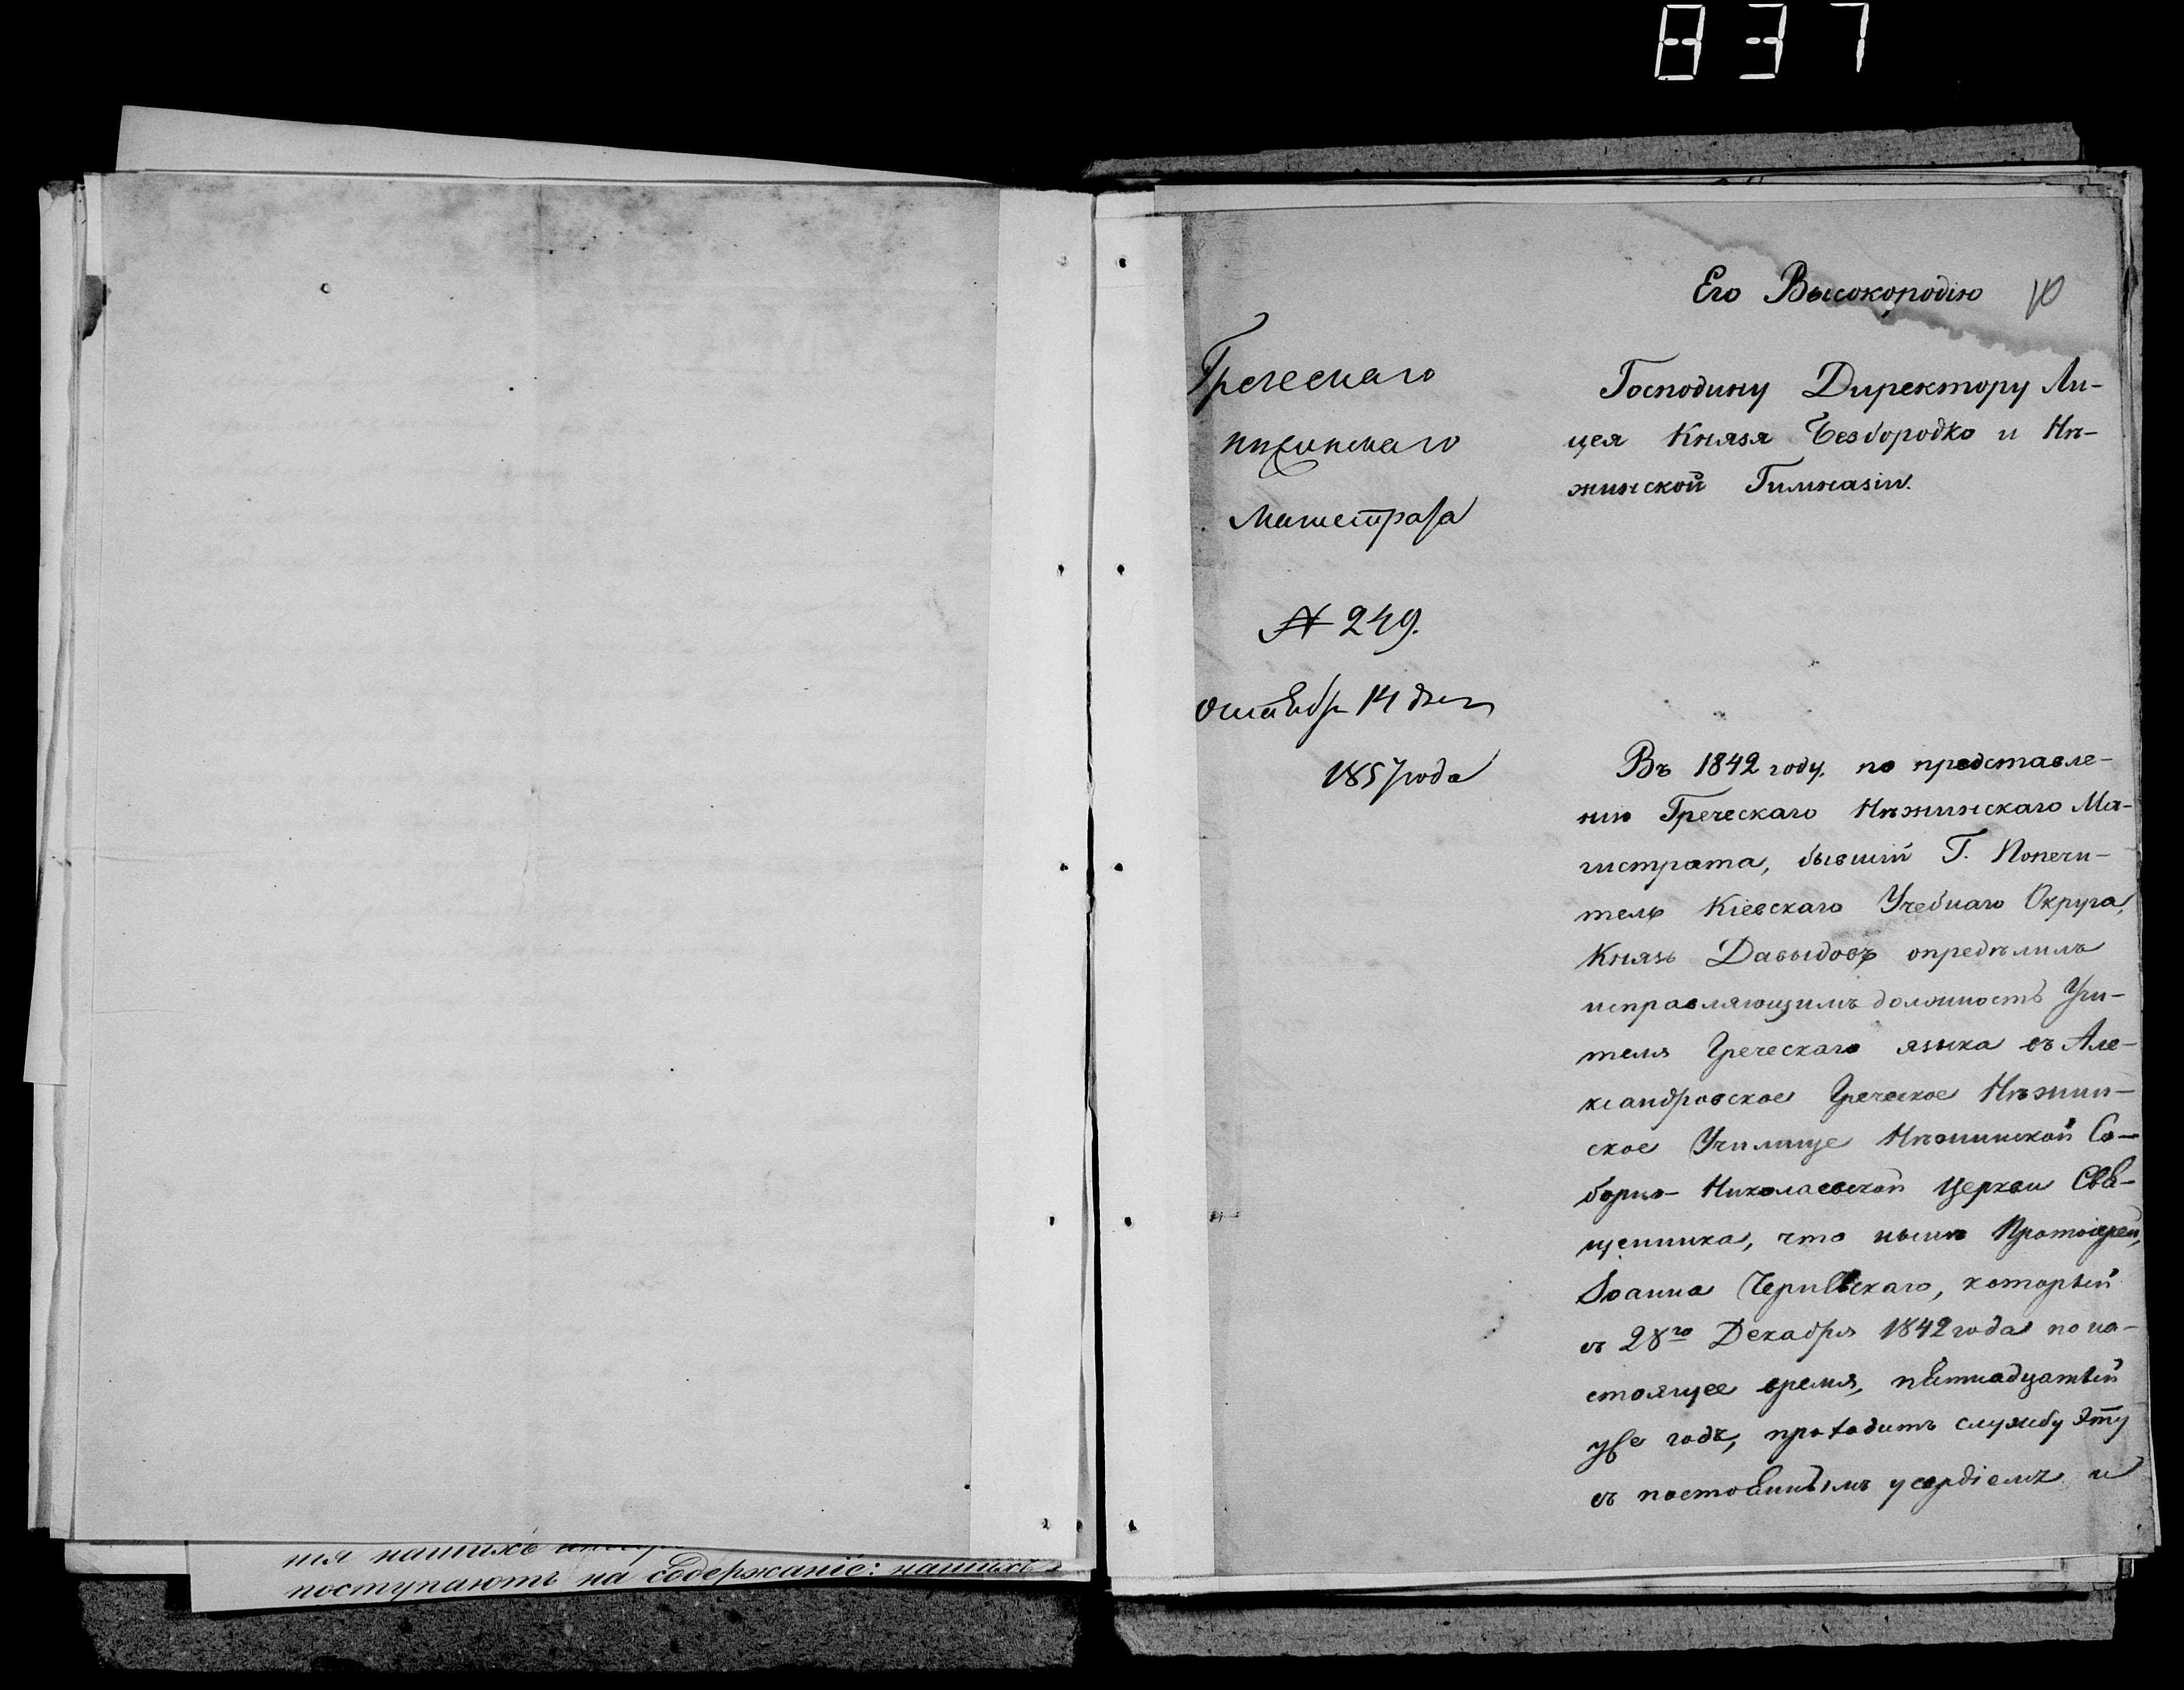 837
Его Высокородію
10
Господину Директору Ли-
цея Князя Безбородко и Нѣ-
жинской Гимназіи.
Греческаго
нѣжинскаго
Магистрата
№ 249.
Октября 14 дня
1857 года
Въ 1842 году, по представле-
нію Греческаго Нѣжинскаго Ма-
гистрата, бывшій Г. Попечи-
тель Кіевскаго Учебнаго Округа,
Князь Давыдовъ опредѣлилъ
исправляющимъ должность Учи-
теля Греческаго языка въ Але-
ксандровское Греческое Нѣжин-
ское Училище Нѣжинской Со-
борно-Николаевской Церкви Свя-
щенника, что нынѣ Протоіерей,
Іоанна Чернявскаго, который
съ 28го Декабря 1842 года по на-
стоящее время, пятнадцатый
уже годъ, проходитъ службу эту
съ постояннымъ усердіемъ и
поступаютъ на содержаніе: нашихъ